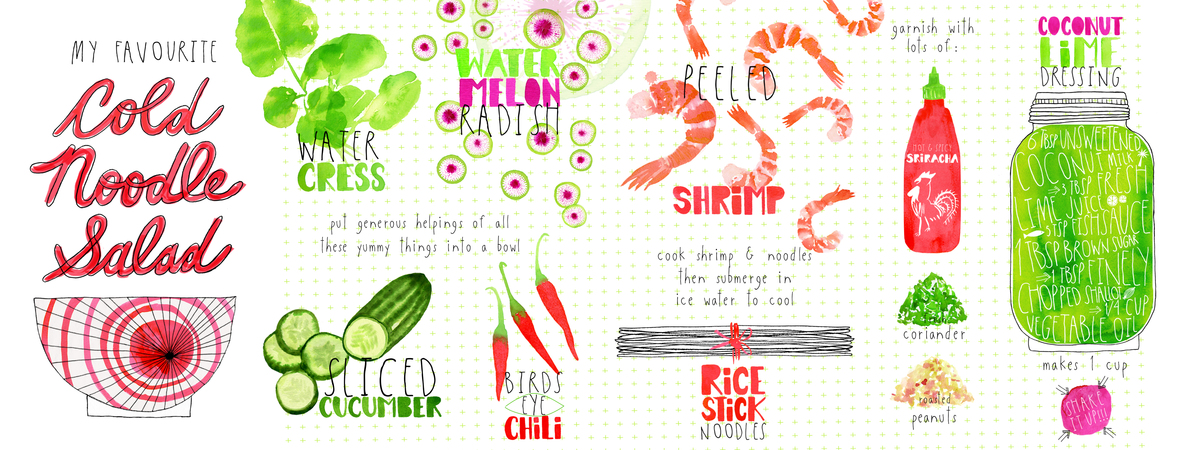 MY FAVOURITE
Cold
Noodle
Salad
WATER
CRESS
WATER
MELON
RADISH
put generous helpings of all
these yummy things into a bowl
SLICED
CUCUMBER
BIRDS
EYE
CHiLi
PEELED
SHRiMP
cook shrimp & noodles
then submerge in
ice water to cool
RiCE
STiCK
NOODLES
garnish with
lots of:
HOT & SPICY
SRIRACHA
fresh
coriander
roasted
peanuts
COCONUT
LiME
DRESSING
6 TBSP UNSWEETENED
COCONUT MILK
3 TBSP FRESH
LIME JUICE
3 TBSP FISH SAUCE
1 TBSP BROWN SUGAR
1 TBSP FINELY
CHOPPED SHALLOT
1/4 CUP
VEGETABLE OIL
makes 1 cup
SHAKE
IT UP!!!